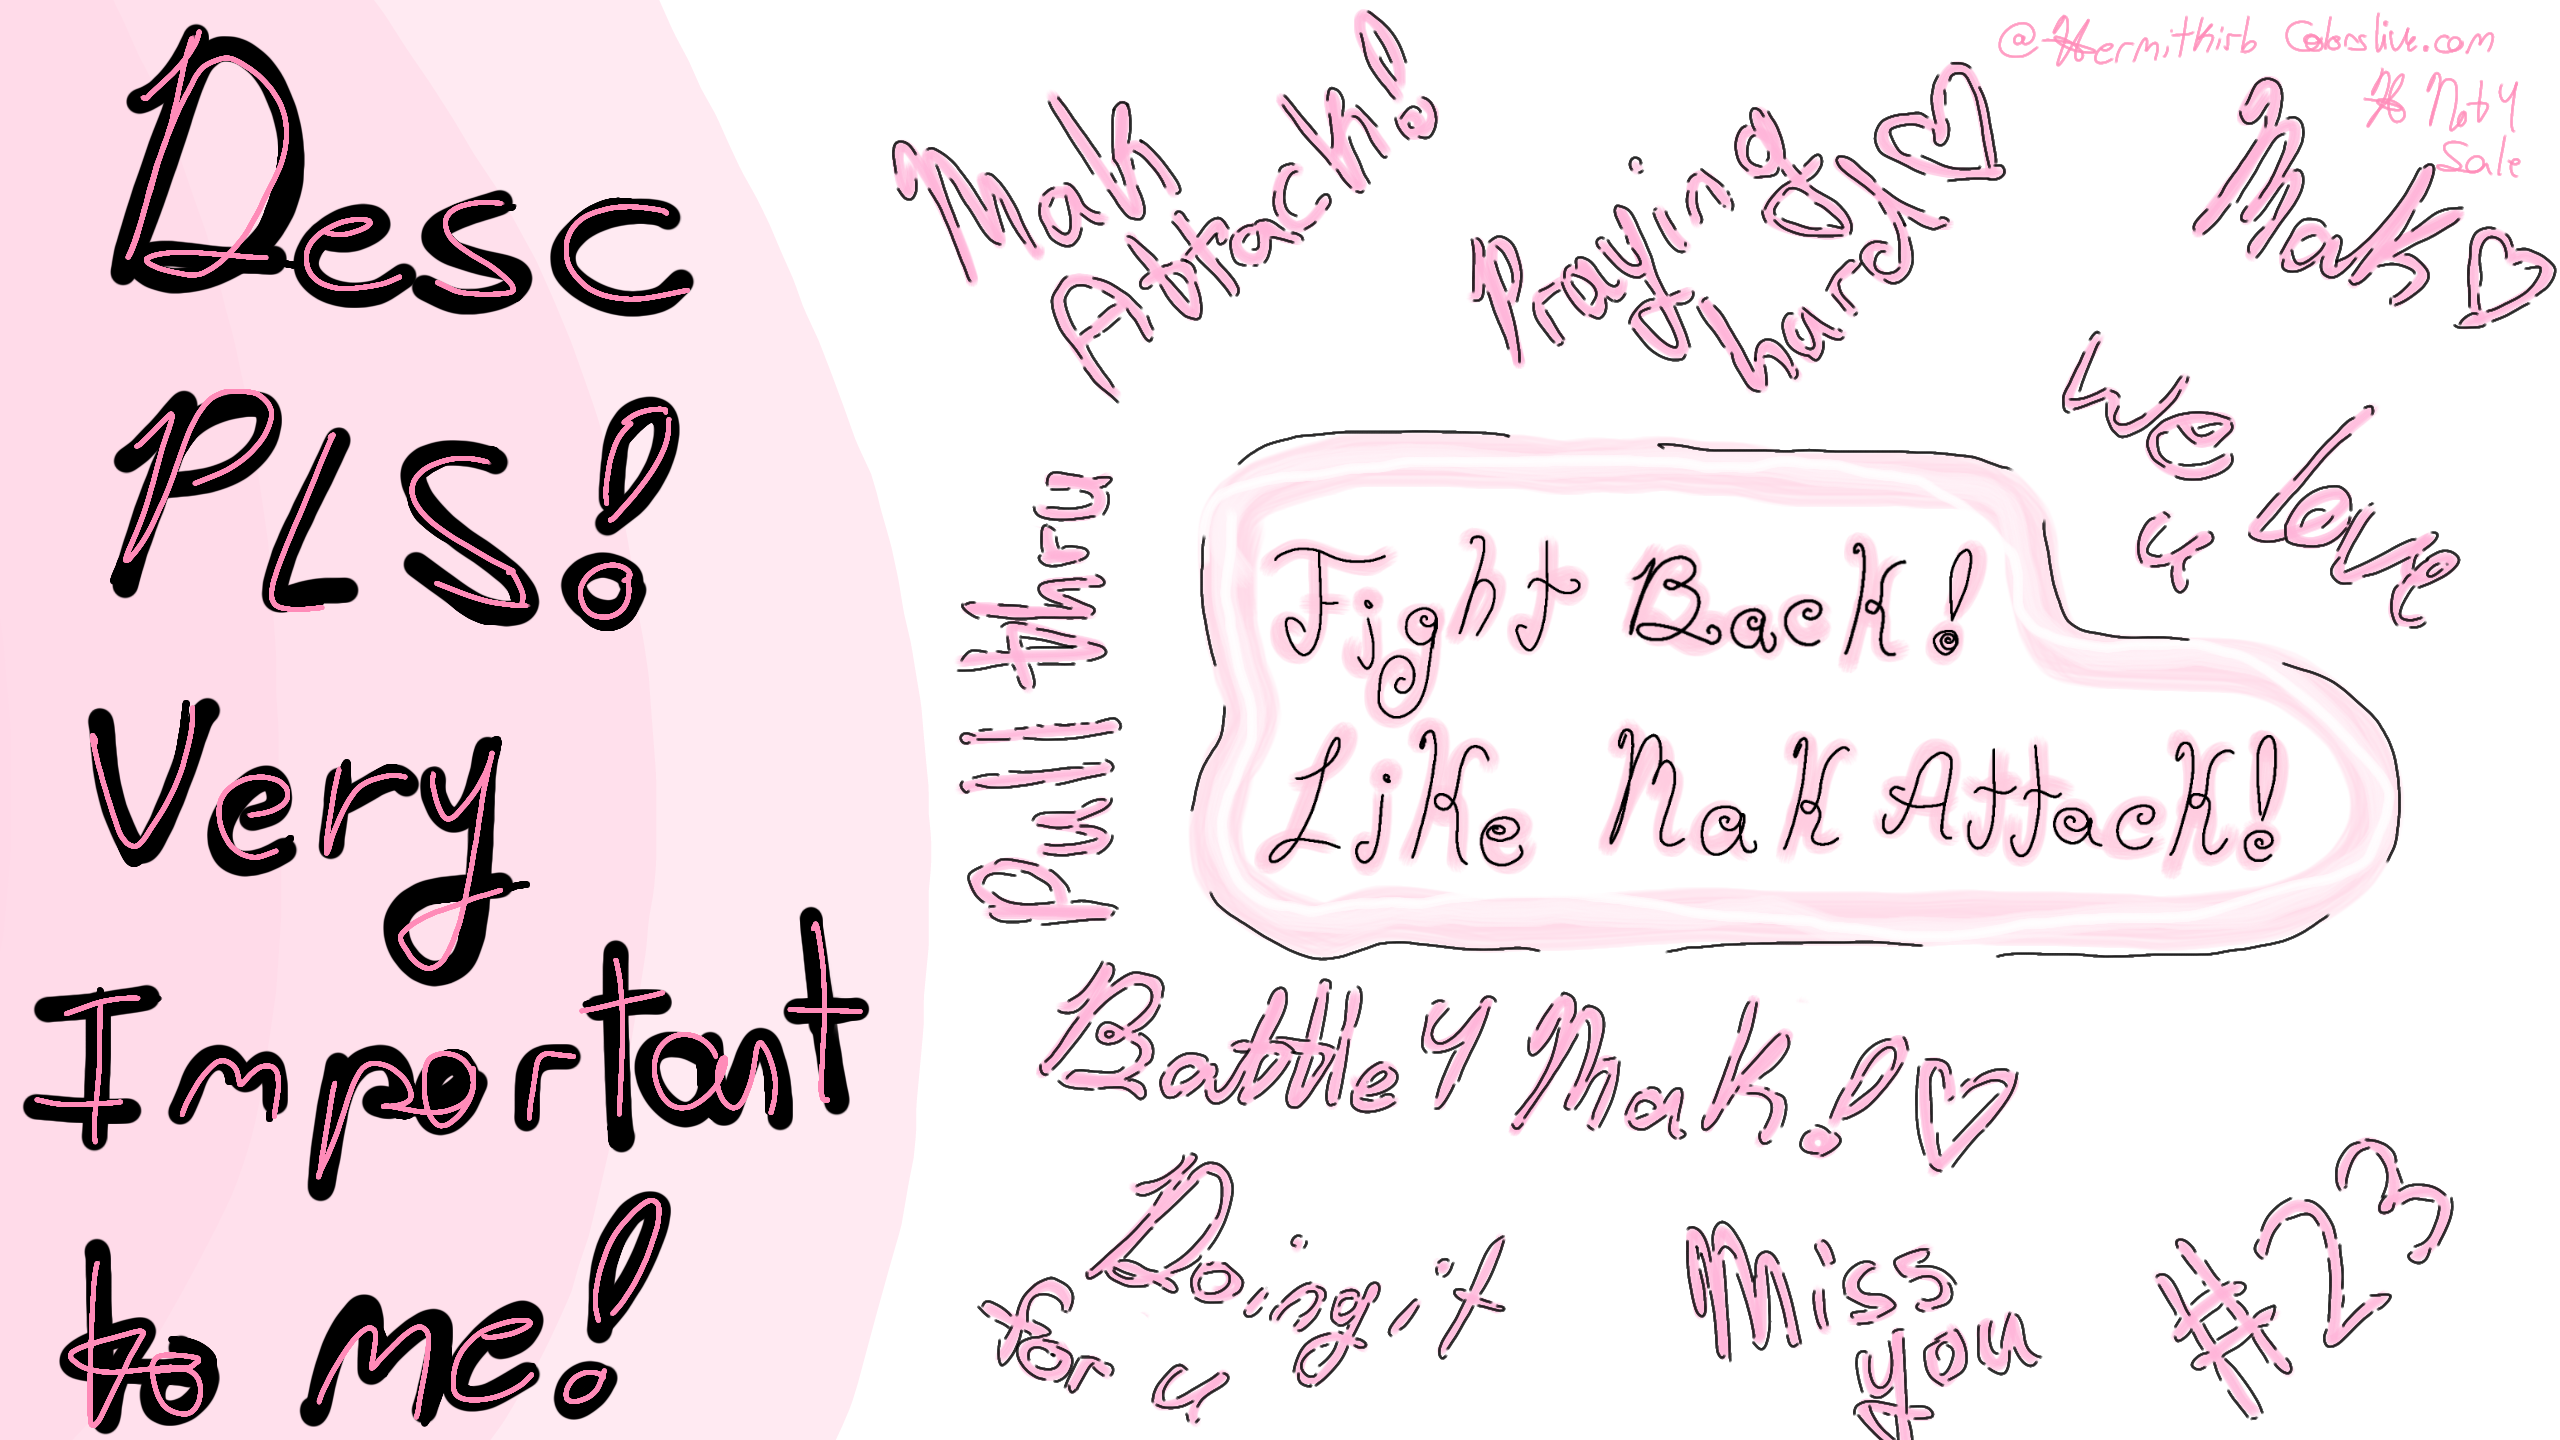 Desc
PLS!
Very
Important
to me!
@Hermitkirb Colorslive.com
Not 4
Sale
Mak
Attack!
Praying
hard
Mak
We love
u
Pull thru
Fight Back!
Like Mak Attack!
Battle 4 Mak!
Doing it
for u
Miss
you
#23